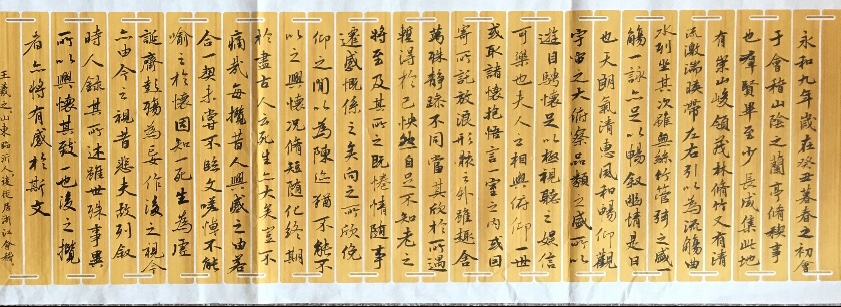 永和九年歲在癸丑暮春之初會
于會稽山陰之蘭亭脩稧事
也群賢畢至少長咸集此地
有崇山峻領茂林脩竹又有清
流激湍暎帶左右引以為流觴曲
水列坐其次雖無絲竹管弦之盛一
觴一詠亦足以暢敘幽情是日
也天朗氣清惠風和暢仰觀
宇宙之大俯察品類之盛所以
遊目騁懷足以極視聽之娛信
可樂也夫人之相與俯仰一世
或取諸懷抱悟言一室之內或因
寄所託放浪形骸之外雖趣舍
萬殊靜躁不同當其欣於所遇
暫得於己怏然自足不知老之
將至及其所之既惓情隨事
遷感慨係之矣向之所欣俛
仰之間以為陳迹猶不能不
以之興懷況脩短隨化終期
於盡古人云死生亦大矣豈不
痛哉每攬昔人興感之由若
合一契未嘗不臨文嗟悼不能
喻之於懷固知一死生為虛
誕齊彭殤為妄作後之視今
亦由今之視昔悲夫故列敘
時人錄其所述雖世殊事異
所以興懷其致一也後之攬
者亦將有感於斯文
王羲之山東臨沂人後徙居浙江會稽